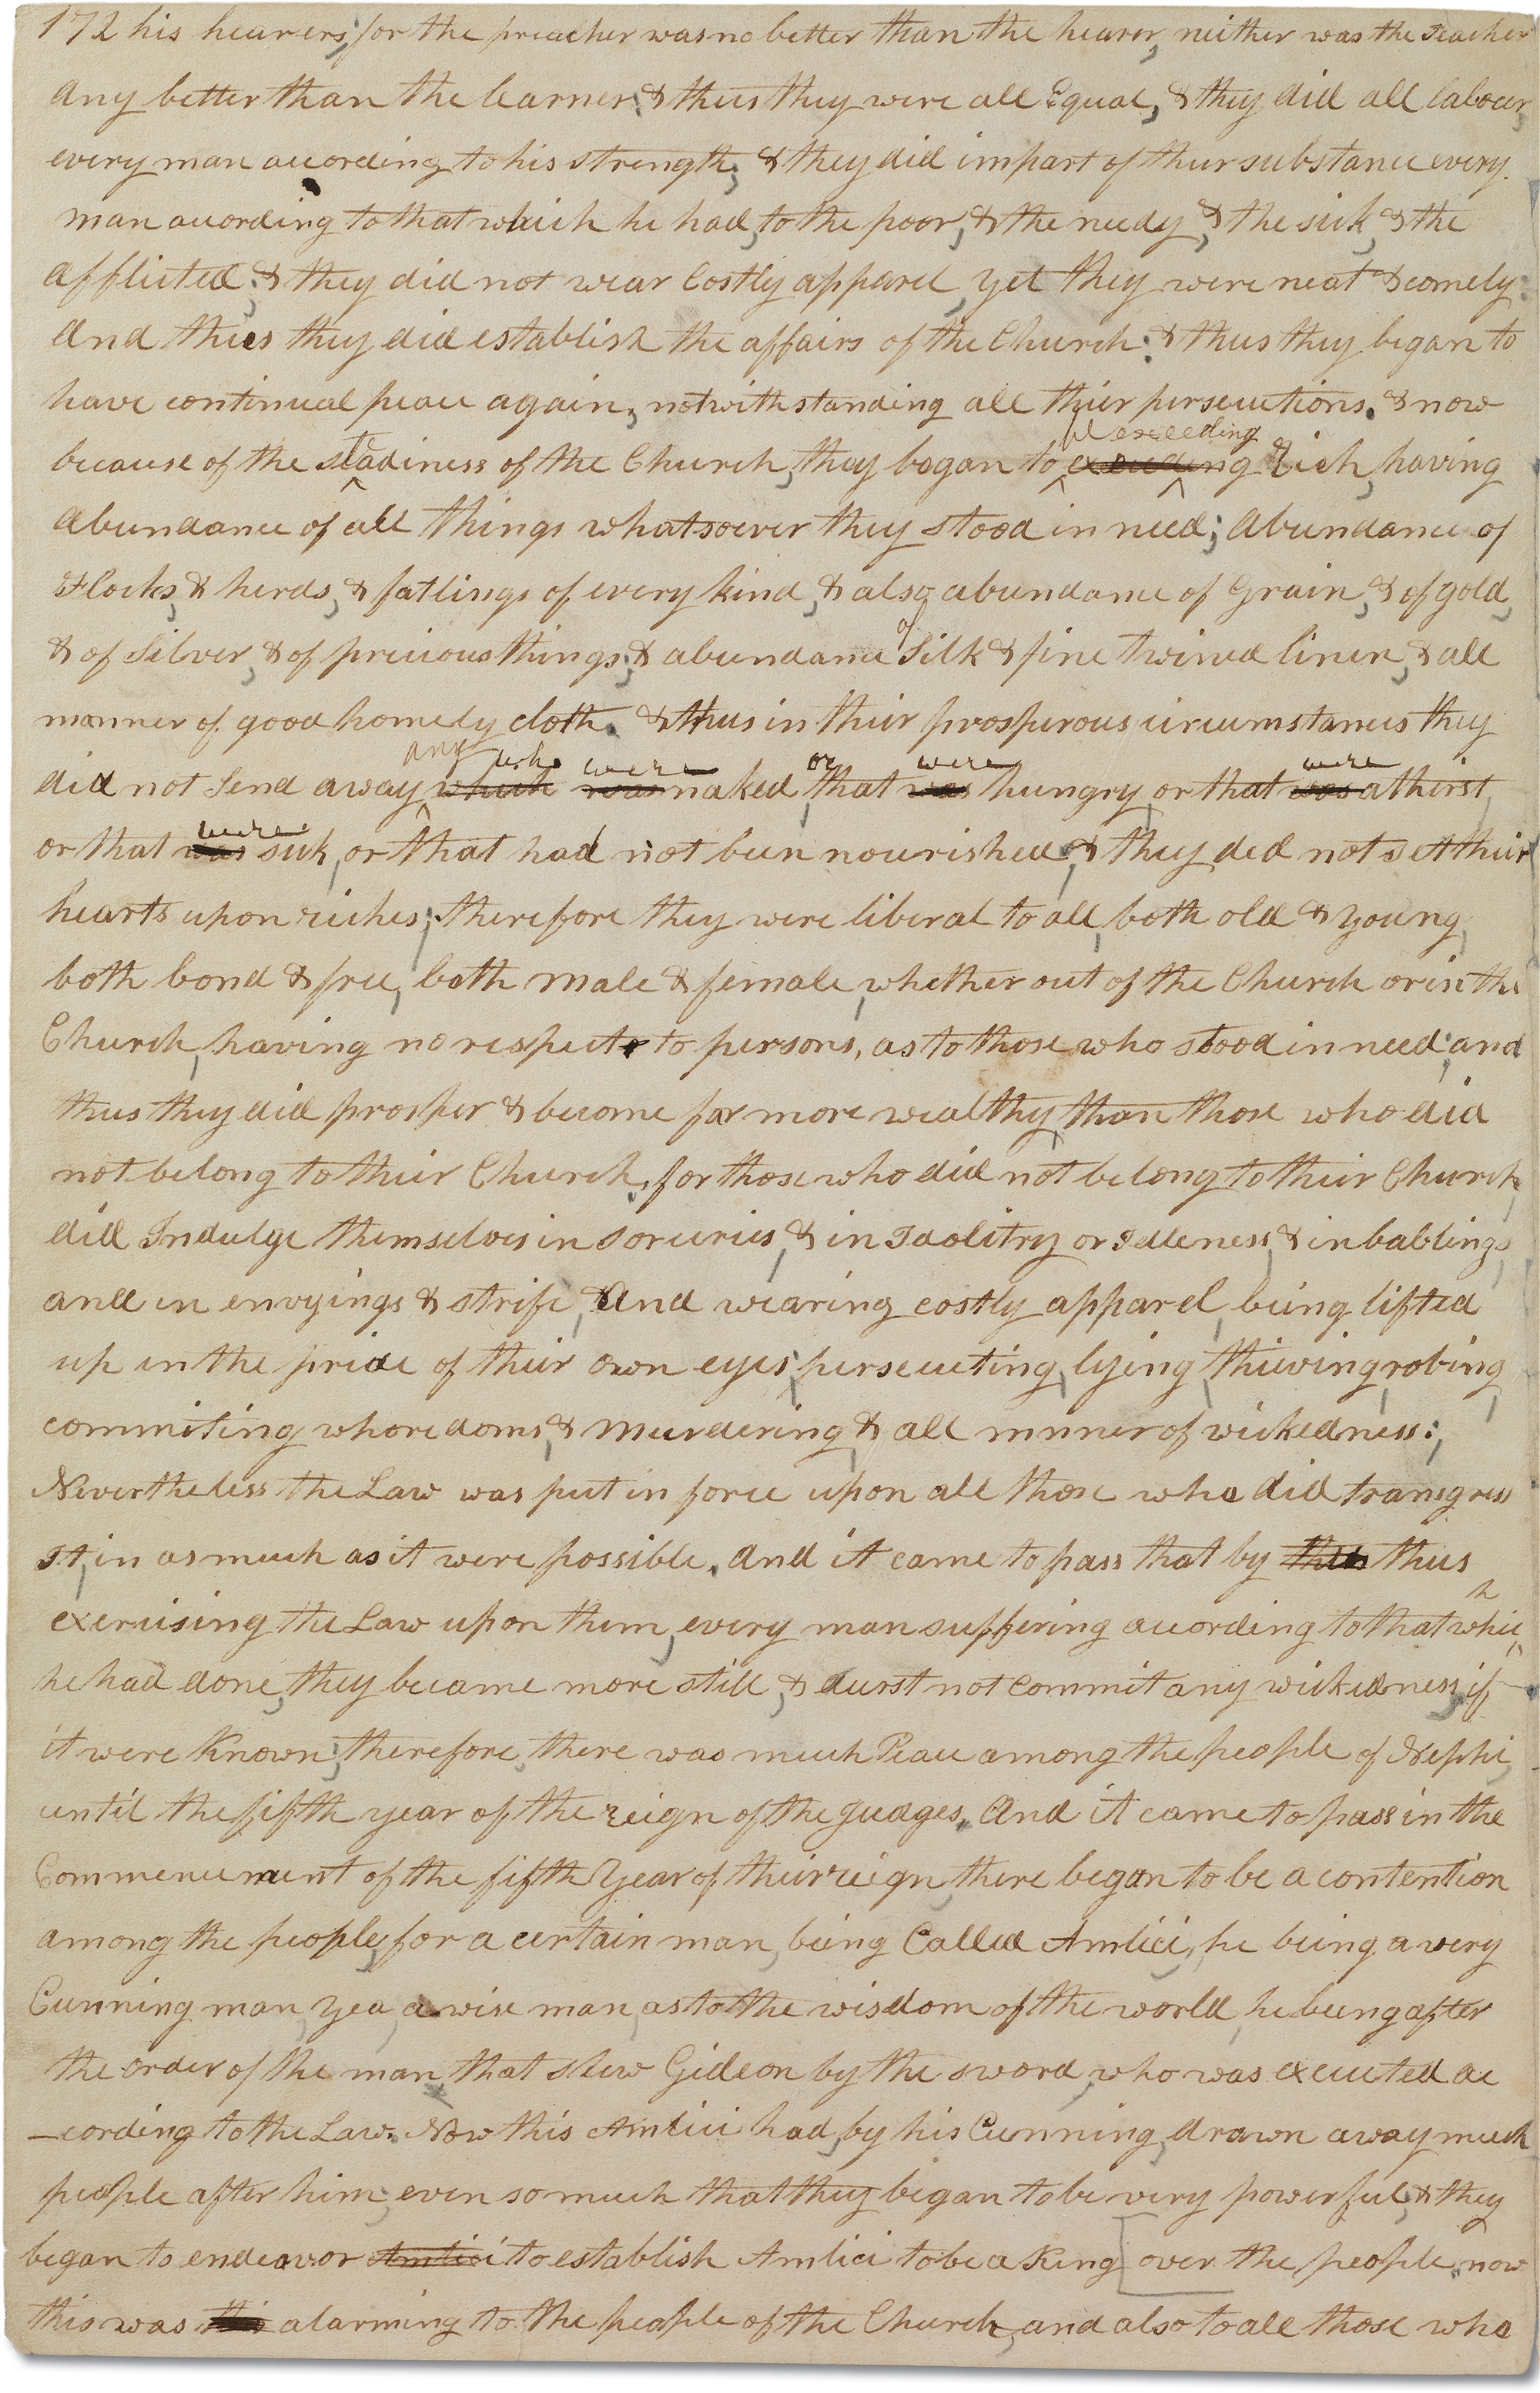 172 his hearers; for the preacher was no better than the hearer, neither was the Teacher
any better than the learner: & thus they were all Equal, & they did all labour,
every man according to his strength; & they did impart of their substance every
man according to that which he had, to the poor, & the needy, & the sick, & the
afflicted: & they did not wear Costly apparel, yet they were neat & comely:
And thus they did establish the affairs of the Church: & thus they began to
have continual peace again, notwithstanding all their persecutions. & now
because of the steadiness of the Church, they began to be exceeding rich, having
abundance of all things whatsoever they stood in need; Abundance of
Flocks, & herds, & fatlings of every kind, & also abundance of Grain, & of gold,
& of Silver, & of precious things; & abundance of Silk & fine twined linen, & all
manner of good homely cloth. & thus in their prosperous circumstances they
did not Send away any who were naked, or that were hungry, or that were athirst,
or that were sick, or that had not been nourished; & they did not set their
hearts upon riches; therefore they were liberal to all, both old & young,
both bond & free, both male & female, whether out of the Church or in the
Church, having no respect to persons, as to those who stood in need; and
thus they did prosper & become far more wealthy, than those who did
not belong to their Church. for those who did not belong to their Church,
did Indulge themselves in Sorceries, & in Idolitry or Idleness, & in bablings,
and in envyings & strife, And wearing costly apparel, being lifted
up in the pride of their own eyes; persecuting, lying, thieving, robing,
commiting whoredoms, & murdering, & all manner of wickedness:
Nevertheless the Law was put in force upon all those who did transgress
It, in as much as it were possible. And it came to pass that by thus
exercising the Law upon them, every man suffering according to that which
he had done, they became more still, & durst not commit any wickedness, if
it were Known; therefore, there was much Peace among the people of Nephi,
until the fifth year of the reign of the Judges. And it came to pass in the
Commencement of the fifth Year of their reign, there began to be a contention
among the people, for a certain man, being Called Amlici, he being a very
Cunning man, Yea, a wise man, as to the wisdom of the world, he being after
the order of the man that slew Gideon by the sword, who was executed ac
-cording to the Law. Now this Amlici had, by his Cunning, drawn away much
people after him; even so much that they began to be very powerful; & they
began to endeavor Amlici to establish Amlici to be a King over the people. now
this was alarming to the people of the Church, and also to all those who